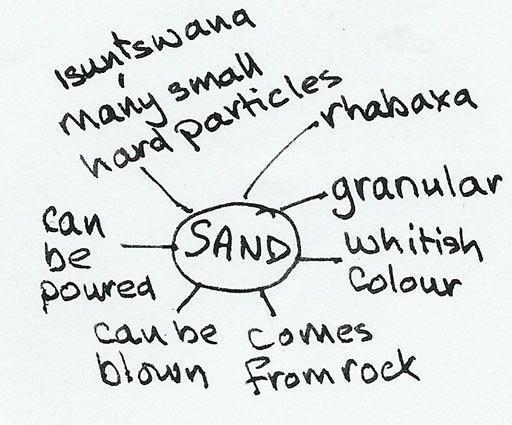 isuntswana
many small
hard particles
rhabaxa
granular
whitish
colour
comes
from rock
can be
blown
can
be
poured
SAND